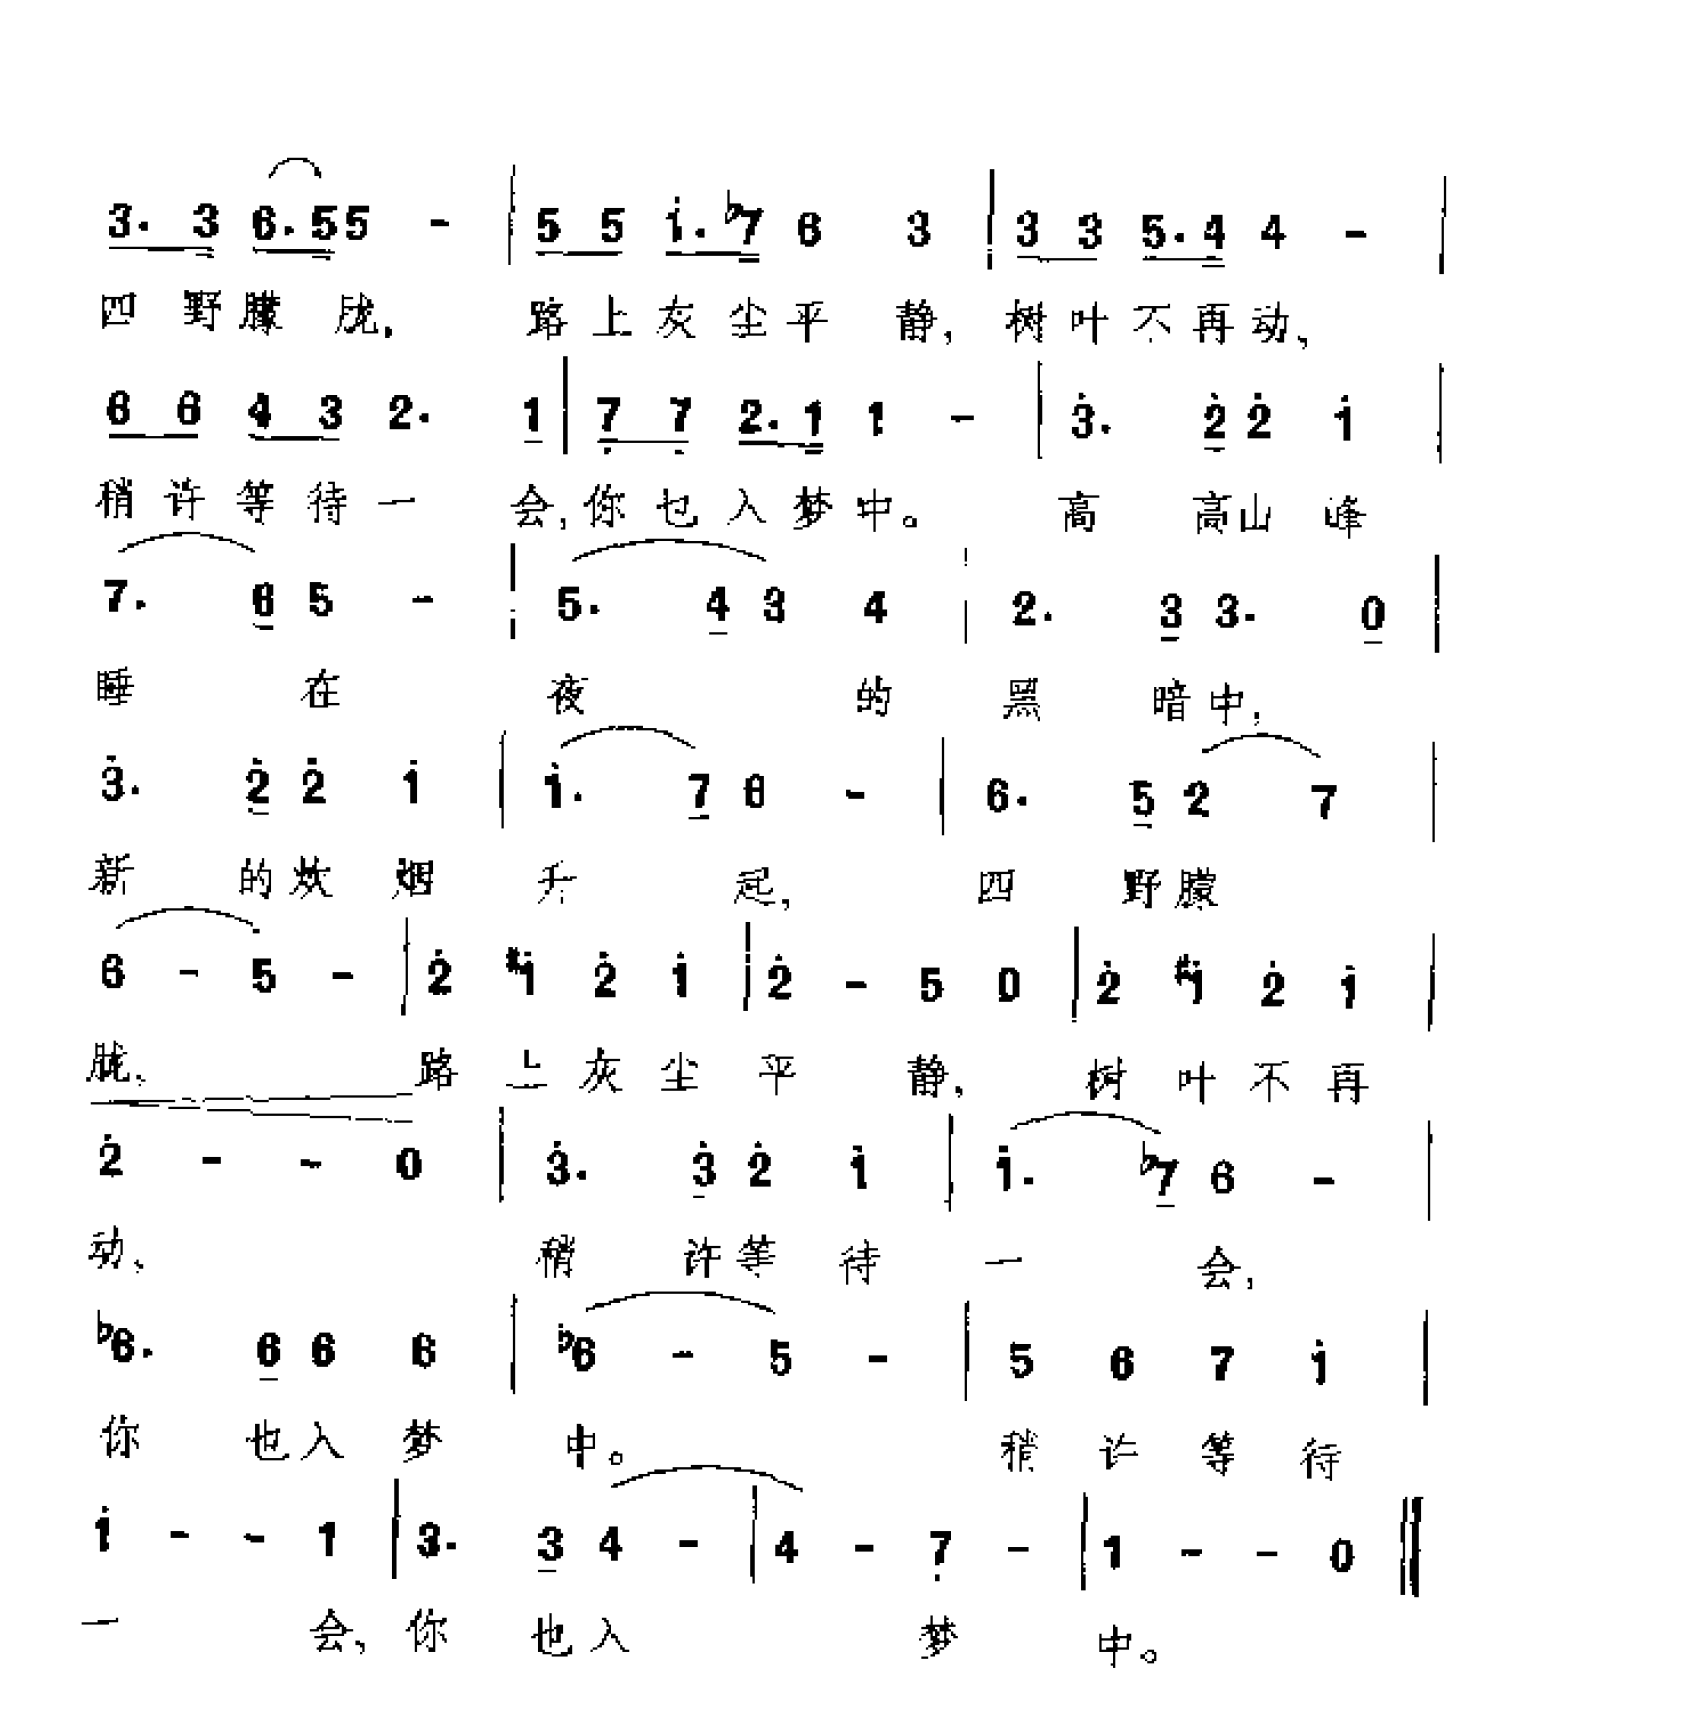 3. 3 6. 5 5 - | 5 5 i. ♭7 6 3 | 3 3 5. 4 4 - |
四 野 朦 胧, 路 上 灰 尘 平 静, 树 叶 不 再 动、
6 6 4 3 2. 1 | 7 7 2. 1 1 - | 3. 2 2 i |
稍 许 等 待 一 会, 你 也 入 梦 中。 高 高 山 峰
7. 6 5 - | 5. 4 3 4 | 2. 3 3. 0 |
睡 在 夜 的 黑 暗 中,
3. 2 2 i | i. 7 6 - | 6. 5 2 7 |
新 的 炊 烟 升 起, 四 野 朦
6 - 5 - | 2 #i 2 i | 2 - 5 0 | 2 #i 2 i |
胧, 路 上 灰 尘 平 静, 树 叶 不 再
2 - - 0 | 3. 3 2 i | i. ♭7 6 - |
动、 稍 许 等 待 一 会,
♭6. 6 6 6 | ♭6 - 5 - | 5 6 7 i |
你 也 入 梦 中。 稍 许 等 待
i - - 1 | 3. 3 4 - | 4 - 7 - | 1 - - 0 ‖
一 会, 你 也 入 梦 中。